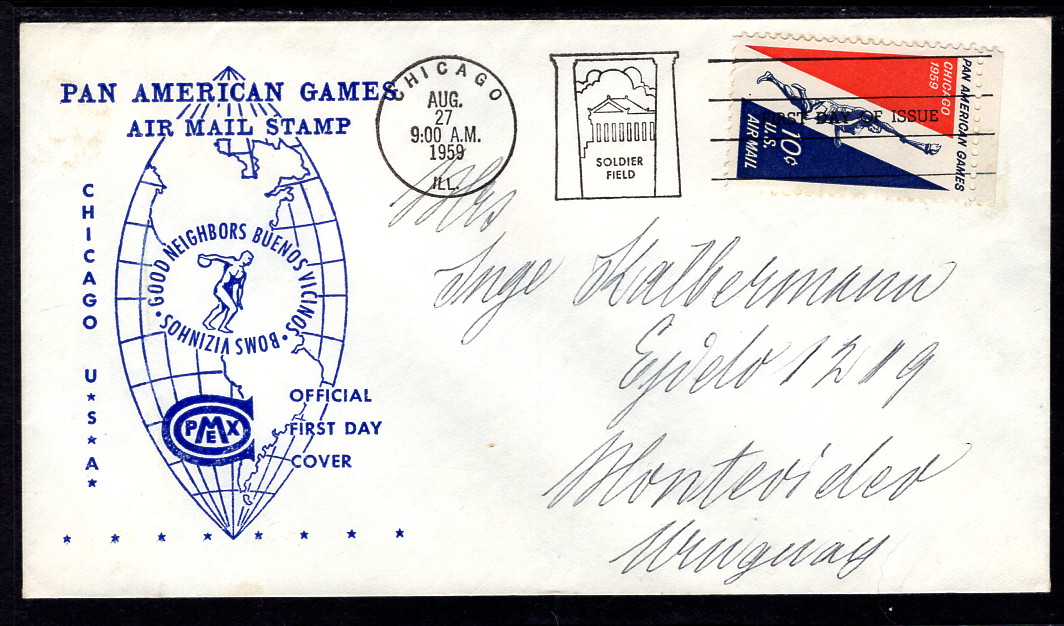 PAN AMERICAN GAMES
AIR MAIL STAMP
CHICAGO U★S★A★
GOOD NEIGHBORS BUENOS VICINOS • BOMS VIZINHOS •
PMEX
OFFICIAL
FIRST DAY
COVER
CHICAGO
AUG.
27
9:00 A.M.
1959
ILL.
SOLDIER
FIELD
FIRST DAY OF ISSUE
PAN AMERICAN GAMES
CHICAGO
1959
10¢
U.S.
AIR MAIL
Mrs
Inge Kalbermann
1219
Montevideo
Uruguay